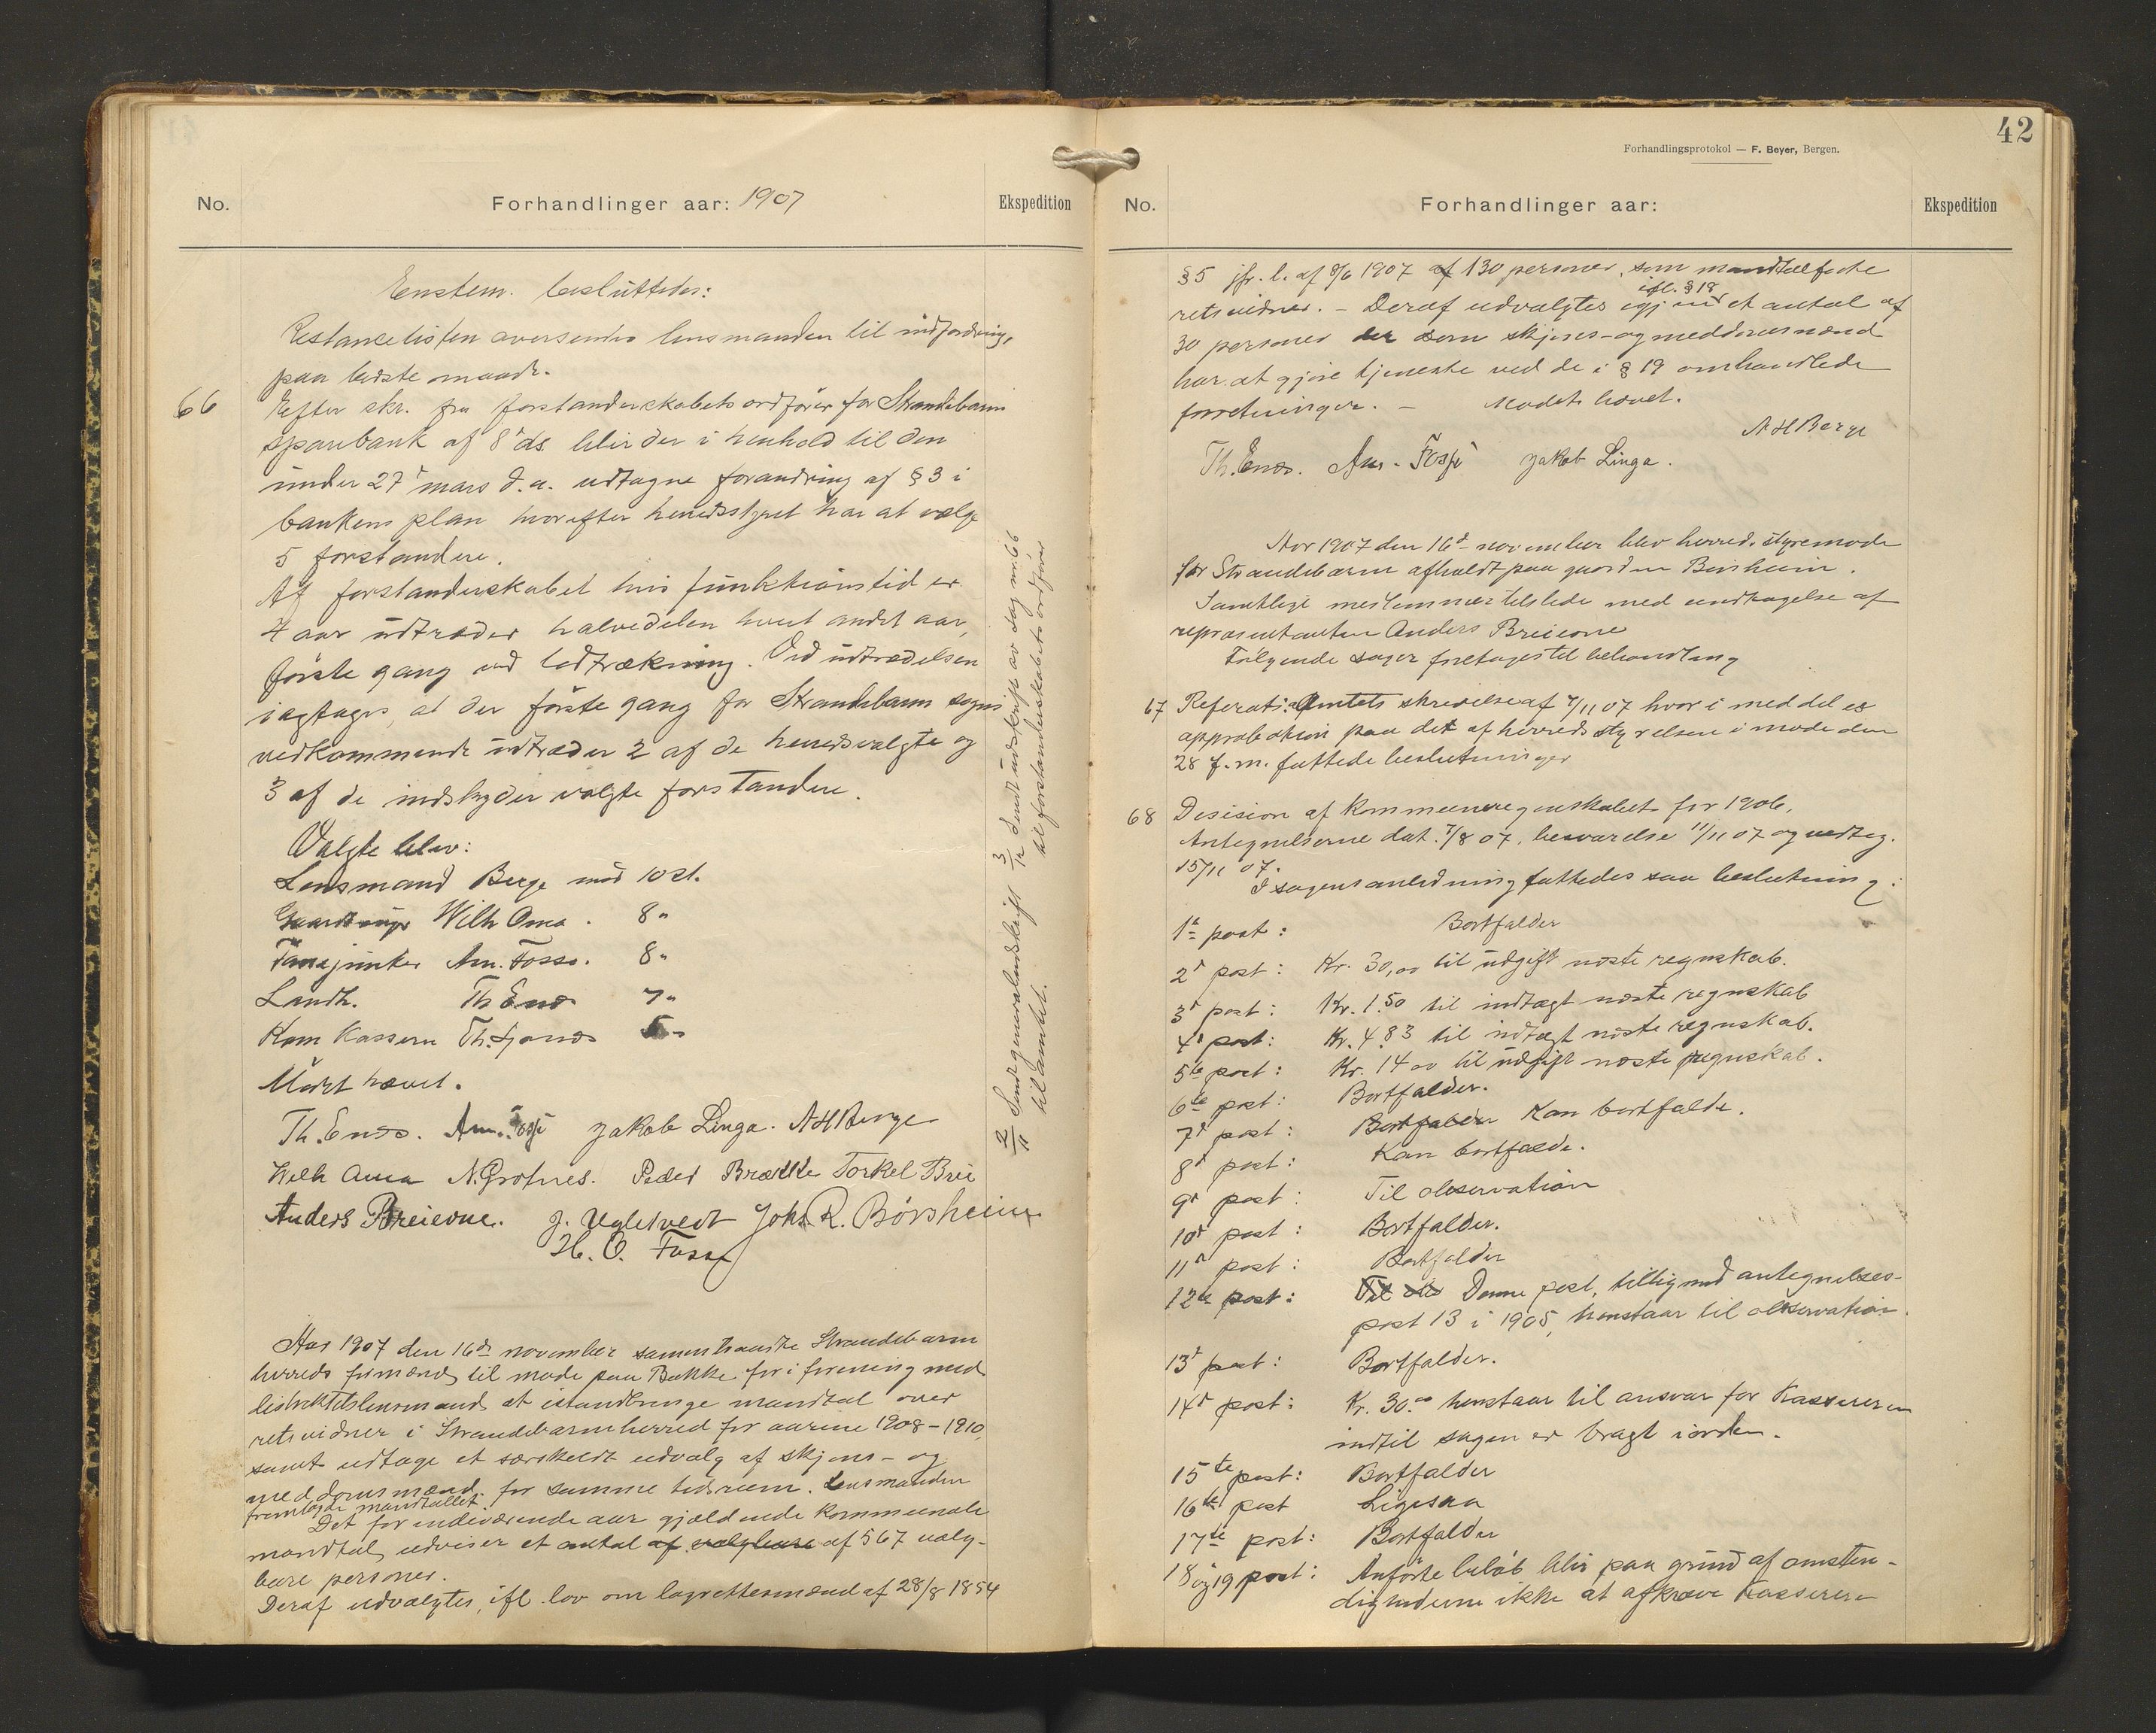 No.
Forhandlinger aar: 1907
Ekspedition
Enstem. besluttedes:
Restancelisten oversendes lensmanden til inddrivning
paa bedste maade.
66
Efter skr. fra forstanderskabets ordfører for Strandebarm
sparebank af 8de ds. blir der i henhold til den
under 27de mars d.a. udtagne forandring af § 3 i
bankens plan hvorefter herredsstyret har at vælge
5 forstandere.
Af forstanderskabet hvis funktionstid er
4 aar udtræder halvedelen hvert andet aar,
første gang ved lodtrækning. Ved udtrædelsen
iagttages, at der første gang for Strandebarm sogns
vedkommende udtræder 2 af de herredsvalgte og
3 af de indskyder valgte forstandere.
Valgte blev:
Lensmand Berge med 10 st.
Gaardbruger Wilh Oma. 8 "
Fanejunker Am. Fosse. 8 "
Landh. Th Enes 7 "
Kom Kasserer Th. 5 "
Mødet hævet.
Th. Enes. Am. Fosse Jakob Linga. A H Berge
Wilh Oma N. Grotnes. Peder Brække Torkel Brei
Anders Breievne. J. Ugletvedt Joh. R. Børsheim
H. O. Fosse
2/11 Sendt genpartudskrift
til amtet.
3/12 Sendt udskrift av sag nr. 66
til forstanderskabets ordfører
Aar 1907 den 16de november samentraadte Strandebarm
herreds formænd til møde paa Bakke for i forening med
distriktslensmand at istandbringe mandtal over
retsvidner i Strandebarm herred for aarene 1908-1910,
samt udtage et særskildt udvalg af skjøns- og
meddomsmænd for samme tidsrum. Lensmanden
fremlagde mandtallet.
Det for indeværende aar gjældende kommunale
mandtal udviser et antal af valgbare af 567 valg-
bare personer.
Deraf udvalgtes, ifl. lov om lagrettesmænd af 28/8 1854
42
Forhandlingsprotokol — F. Beyer, Bergen.
No.
Forhandlinger aar:
Ekspedition
§ 5 jfr. l. af 8/6 1907 af 130 personer, som mandtalførte
ifl. § 18
retsvidner. - Deraf udvalgtes igjen et antal af
30 personer der som skjøns- og meddomsmænd
har at gjøre tjeneste ved de i § 19 omhandlede
forretninger. - Mødet hævet.
A H Berge
Th. Enes. Am. Fosse Jakob Linga.
Aar 1907 den 16de november blev herredsstyremøde
for Strandebarm afholdt paa gaarden Børsheim.
Samtlige medlemmer tilstede med undtagelse af
repræsentanten Anders Breievne
Følgende sager foretages til behandling
67
Referat: Amtets skrivelse af 7/11 07 hvori meddeles
approbation paa det af herredsstyrelsen i møde den
28 f.m. fattede beslutninger
68
Desision af kommuneregnskabet for 1906.
Antegnelserne dat. 7/8 07, besvarelse 11/11 07 og vedteg.
15/11 07.
I sagens anledning fattedes saa beslutning:
1te post: Bortfalder
2d post: Kr. 30,00 til udgift næste regnskab.
3d post: Kr. 1.50 til indtægt næste regnskab
4d post: Kr. 4.83 til indtægt næste regnskab.
5te post: Kr. 14 00 til udgift næste regnskab.
6te post: Bortfalder.
7d post: Bortfalder Kan bortfalde.
8d post: Kan bortfalde.
9d post: Til observation
10d post: Bortfalder.
11d post: Bortfalder
12te post: Til obs Denne post, tilligemed antegnelses-
post 13 i 1905, henstaar til observation.
13d post: Bortfalder.
14d post: Kr. 30.00 henstaar til ansvar for Kassereren
indtil sagen er bragt iorden.
15te post: Bortfalder
16te post Ligesaa
17te post: Bortfalder
18 og 19 post: Anførte beløb blir paa grund af omsten-
dighederne ikke at afkræve Kassereren